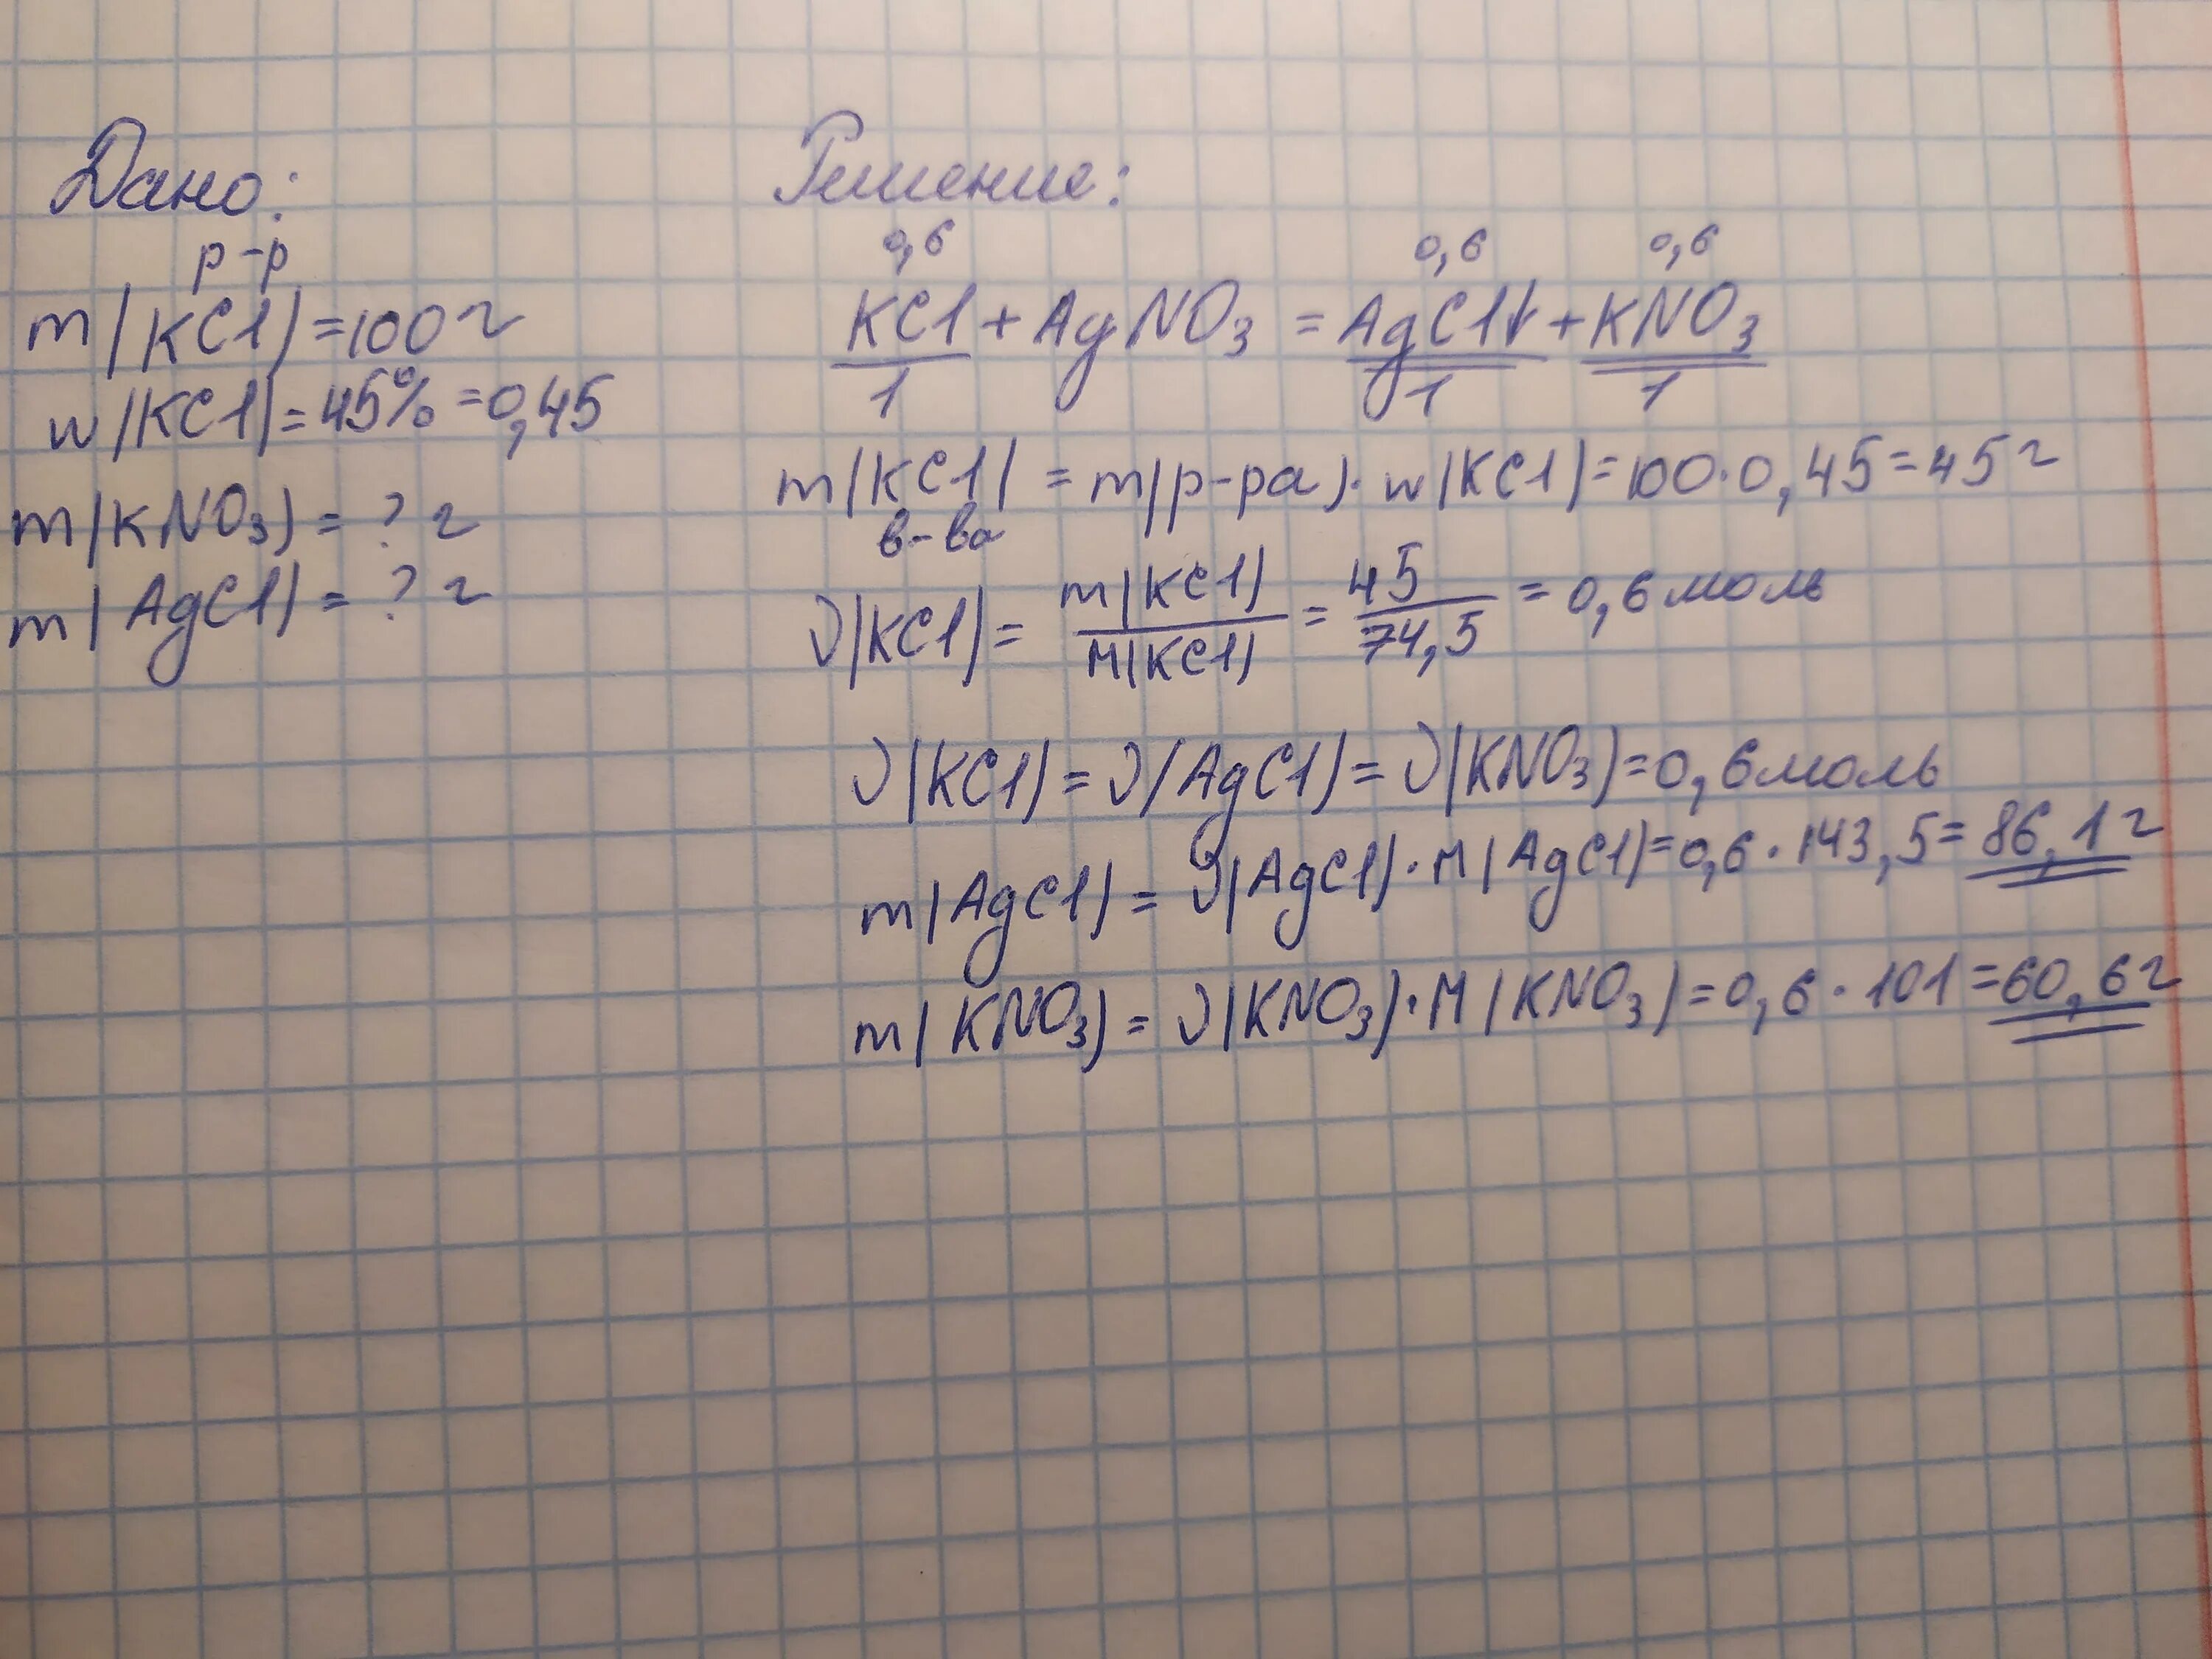 Дано:
р-р
m(KCl)=100г
w(KCl)=45%=0,45
m(KNO₃)=?г
m(AgCl)=?г
Решение:
0,6 0,6 0,6
KCl+AgNO₃=AgCl↓+KNO₃
1 1 1
m(KCl)=m(р-ра)·w(KCl)=100·0,45=45г
в-ва
ν(KCl)=m(KCl)/M(KCl)=45/74,5=0,6моль
ν(KCl)=ν(AgCl)=ν(KNO₃)=0,6моль
m(AgCl)=ν(AgCl)·M(AgCl)=0,6·143,5=86,1г
m(KNO₃)=ν(KNO₃)·M(KNO₃)=0,6·101=60,6г